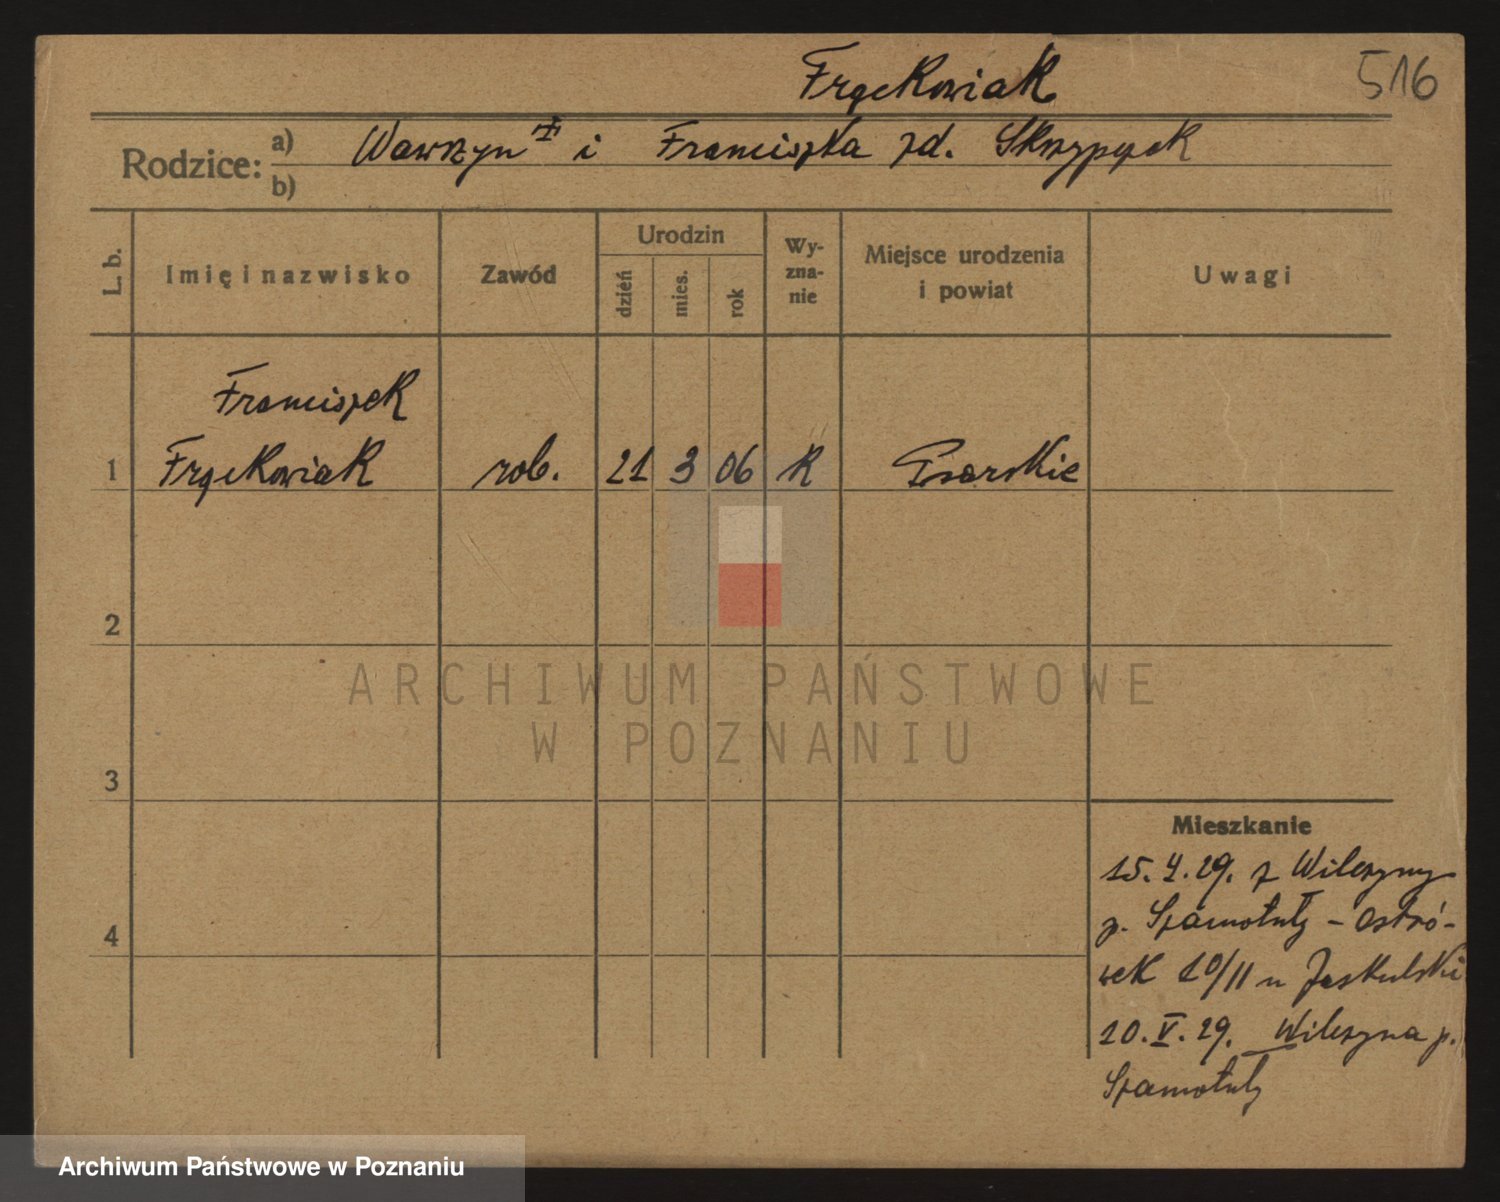 Frąckowiak
516
Rodzice: a) Wawrzyn ± i Franciszka zd. Skrzypczak
b)
L. b.
Imię i nazwisko
Zawód
Urodzin
dzień
mies.
rok
Wy-
zna-
nie
Miejsce urodzenia
i powiat
Uwagi
Franciszek
1 Frąckowiak rob. 21 3 06 k Psarskie
2
3
4
Mieszkanie
15.4.29. z Wilczyny
p. Szamotuły - Ostró-
wek 10/11 u Jaskulski
20.V.29. Wilczyna p.
Szamotuły
ARCHIWUM PAŃSTWOWE
W POZNANIU
Archiwum Państwowe w Poznaniu